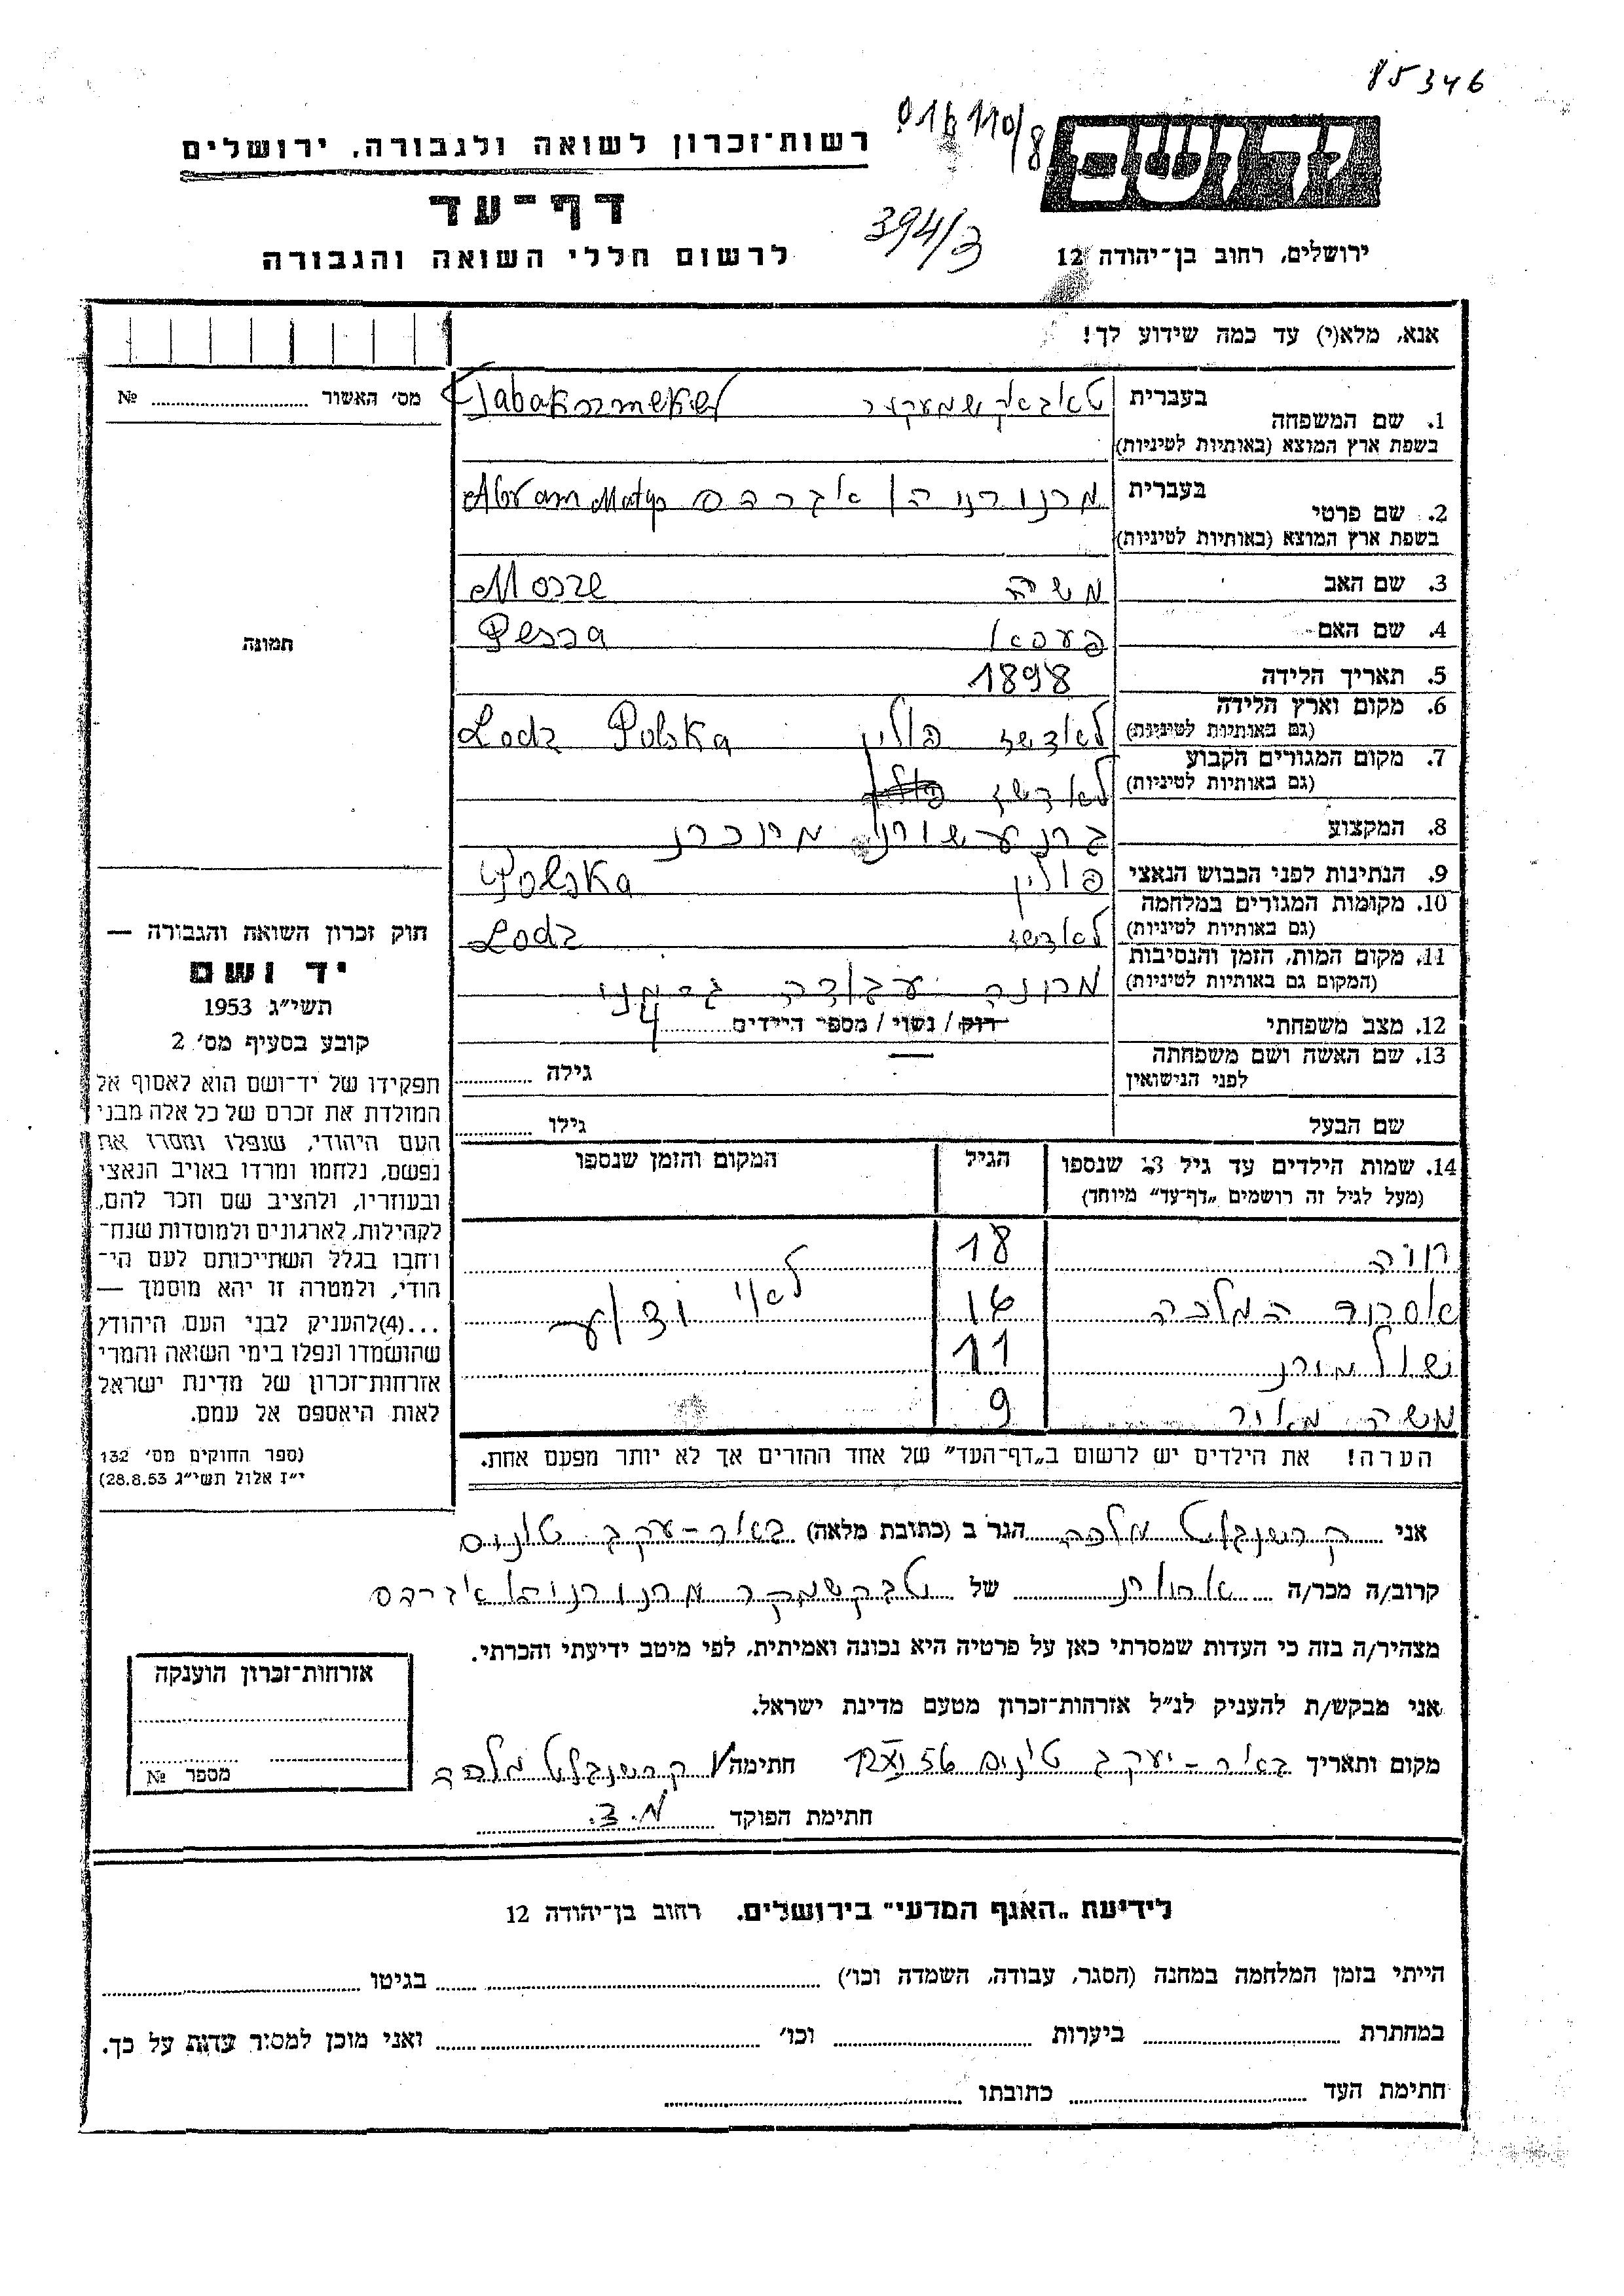 85346
016110/8
ידושם
רשות־זכרון לשואה ולגבורה, ירושלים
דף־עד
394/3
ירושלים, רחוב בן־יהודה 12
לרשום חללי השואה והגבורה
אנא, מלא(י) עד כמה שידוע לך!
מס׳ האשור № 
1. שם המשפחה בעברית טאבאקשמעקער Tabakszmeker
בשפת ארץ המוצא (באותיות לטיניות)
2. שם פרטי בעברית אברהם Abram Matys
בשפת ארץ המוצא (באותיות לטיניות)
3. שם האב משה Mosze
4. שם האם פעסא Pessa
5. תאריך הלידה 1898
6. מקום וארץ הלידה לאדשז פולין Lodz Polska
(גם באותיות לטיניות)
7. מקום המגורים הקבוע לאדשז פולין
(גם באותיות לטיניות)
8. המקצוע
9. הנתינות לפני הכבוש הנאצי פולין Polska
10. מקומות המגורים במלחמה לאדשז Lodz
(גם באותיות לטיניות)
11. מקום המות, הזמן והנסיבות מחנה עבודה גרמני
(המקום גם באותיות לטיניות)
12. מצב משפחתי רוק / נשוי / מספר הילדים 4
13. שם האשה ושם משפחתה
לפני הנישואין גילה
שם הבעל גילו
14. שמות הילדים עד גיל 13 שנספו הגיל המקום והזמן שנספו
(מעל לגיל זה רושמים „דף־עד״ מיוחד)
חוה 18
אסתר המלכה 16 לא ידוע
11
משה מאיר 9
הערה! את הילדים יש לרשום ב„דף־העד״ של אחד ההורים אך לא יותר מפעם אחת.
תמונה
חוק זכרון השואה והגבורה —
יד ושם
תשי״ג 1953
קובע בסעיף מס׳ 2
תפקידו של יד־ושם הוא לאסוף אל
המולדת את זכרם של כל אלה מבני
העם היהודי, שנפלו ומסרו את
נפשם, נלחמו ומרדו באויב הנאצי
ובעוזריו, ולהציב שם וזכר להם,
לקהילות, לארגונים ולמוסדות שנח־
רחבו בגלל השתייכותם לעם הי־
הודי, ולמטרה זו יהא מוסמך —
...(4)להעניק לבני העם היהודי
שהושמדו ונפלו בימי השואה והמרי
אזרחות־זכרון של מדינת ישראל
לאות היאספם אל עמם.
(ספר החוקים מס׳ 132
י״ז אלול תשי״ג 28.8.53)
אני קרשנבלט מלכה הגר ב (כתובת מלאה) באר-יעקב
קרוב/ה מכר/ה של טבקשמקר אברהם
מצהיר/ה בזה כי העדות שמסרתי כאן על פרטיה היא נכונה ואמיתית, לפי מיטב ידיעתי והכרתי.
אני מבקש/ת להעניק לנ״ל אזרחות־זכרון מטעם מדינת ישראל.
מקום ותאריך באר-יעקב 12 XI 56 חתימה קרשנבלט מלכה
חתימת הפוקד מ.צ.
אזרחות־זכרון הוענקה
מספר №
לידיעת „האגף המדעי״ בירושלים, רחוב בן־יהודה 12
הייתי בזמן המלחמה במחנה (הסגר, עבודה, השמדה וכו׳) בגיטו
במחתרת ביערות וכו׳ ואני מוכן למסור עדות על כך.
חתימת העד כתובתו